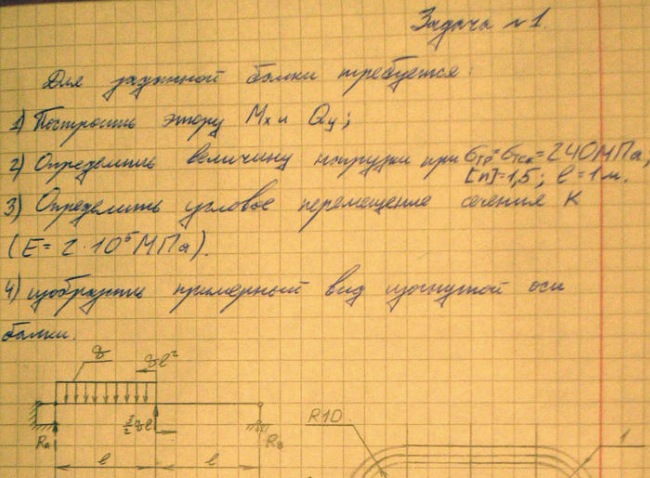 Задача №1.
Для заданной балки требуется:
1) Построить эпюру Mx и Qy;
2) Определить величину нагрузки при σтр=σтсж=240МПа,
[n]=1,5; l=1м.
3) Определить угловое перемещение сечения K
(E=2·10⁵МПа).
4) изобразить примерный вид изогнутой оси
балки.
q
ql²
R10
1
3/2 ql
l
l